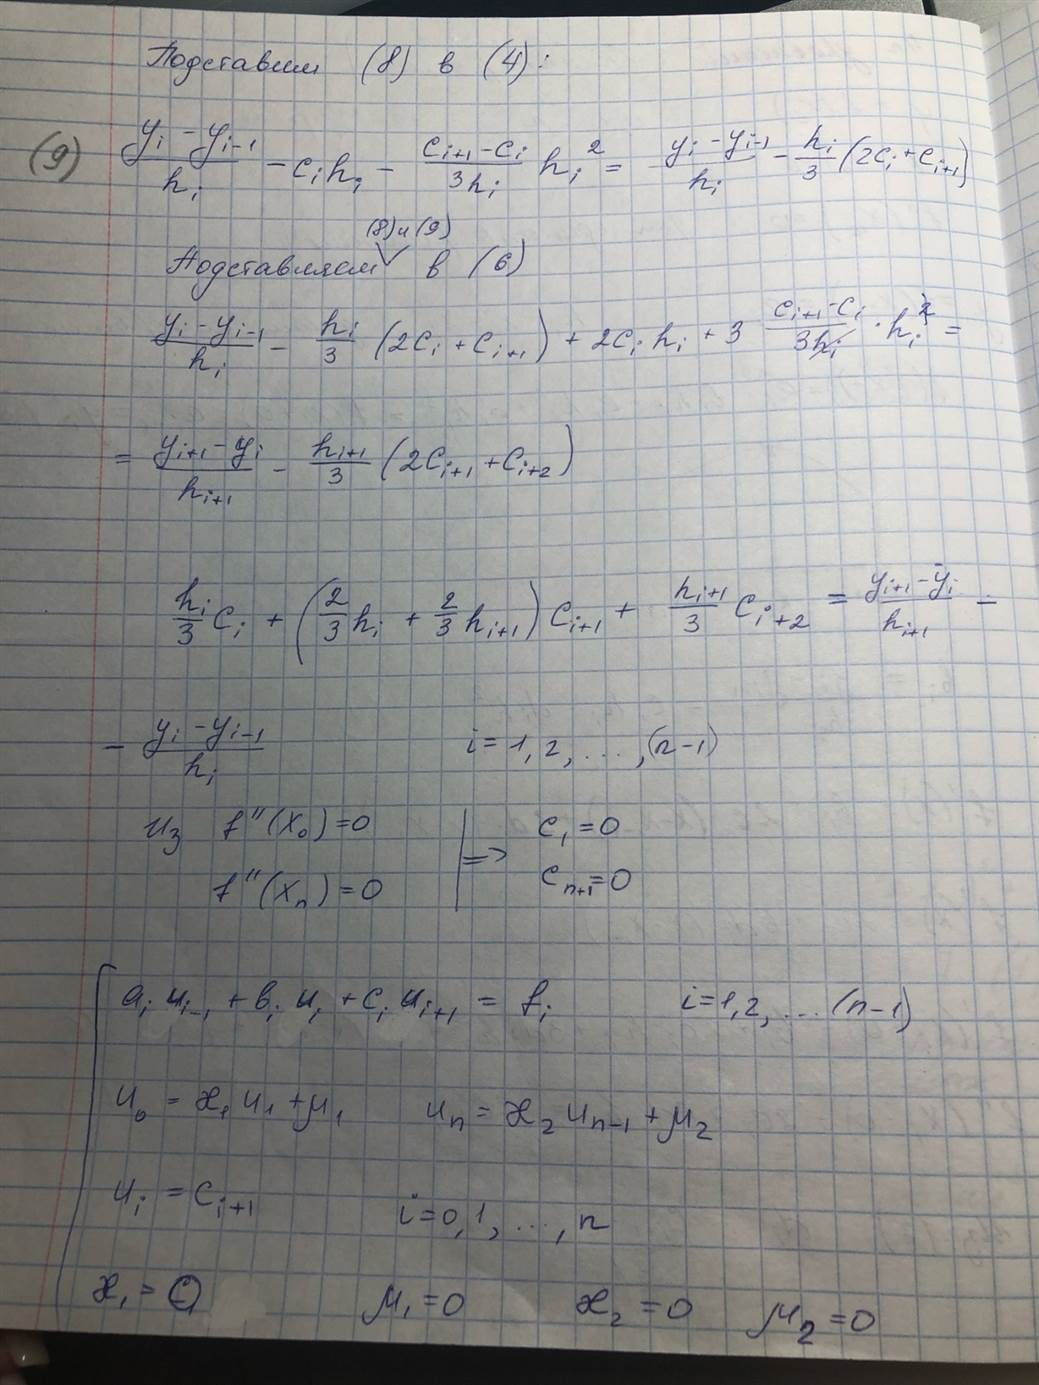 Подставим (8) в (4):
(9) \frac{y_i - y_{i-1}}{h_i} - c_i h_i - \frac{c_{i+1} - c_i}{3h_i} h_i^2 = \frac{y_i - y_{i-1}}{h_i} - \frac{h_i}{3} (2c_i + c_{i+1})
(8) и (9)
Подставляем в (6)
\frac{y_i - y_{i-1}}{h_i} - \frac{h_i}{3} (2c_i + c_{i+1}) + 2c_i h_i + 3 \frac{c_{i+1} - c_i}{3h_i} \cdot h_i^2 =
= \frac{y_{i+1} - y_i}{h_{i+1}} - \frac{h_{i+1}}{3} (2c_{i+1} + c_{i+2})
\frac{h_i}{3} c_i + (\frac{2}{3} h_i + \frac{2}{3} h_{i+1}) c_{i+1} + \frac{h_{i+1}}{3} c_{i+2} = \frac{y_{i+1} - y_i}{h_{i+1}} -
- \frac{y_i - y_{i-1}}{h_i} i = 1, 2, ..., (n-1)
Из f''(x_0) = 0 | => c_1 = 0
f''(x_n) = 0 c_{n+1} = 0
a_i u_{i-1} + b_i u_i + c_i u_{i+1} = f_i i = 1, 2, ... (n-1)
u_0 = æ_1 u_1 + μ_1 u_n = æ_2 u_{n-1} + μ_2
u_i = c_{i+1} i = 0, 1, ..., n
æ_1 = 0 μ_1 = 0 æ_2 = 0 μ_2 = 0